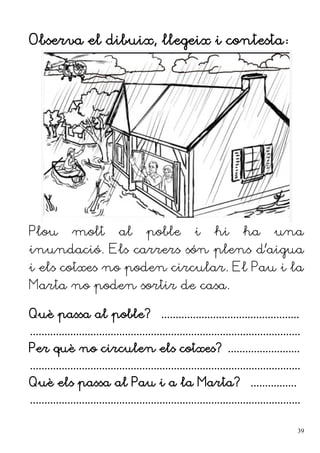 Observa el dibuix, llegeix i contesta:
Plou molt al poble i hi ha una
inundació. Els carrers són plens d'aigua
i els cotxes no poden circular. El Pau i la
Marta no poden sortir de casa.
Què passa al poble? ................................................
..............................................................................................
Per què no circulen els cotxes? .........................
..............................................................................................
Què els passa al Pau i a la Marta? ................
..............................................................................................
39